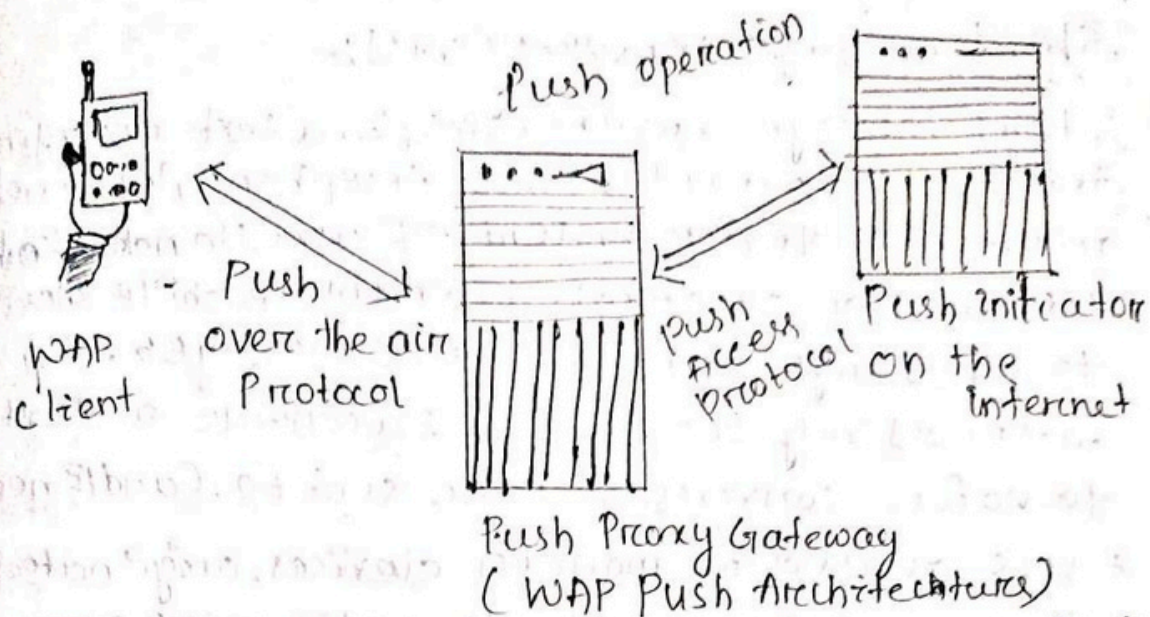 Push operation
WAP
Client
Push
over the air
Protocol
Push
Access
Protocol
Push initiator
on the
internet
Push Proxy Gateway
(WAP Push Architecture)